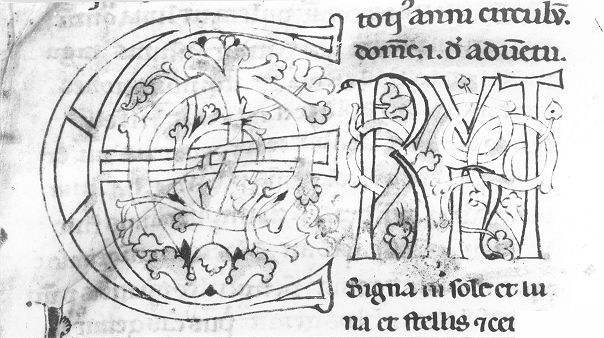 totiꝰ anni circulū.
domīc. 1. đ aduētu.
ERUNT
Signa in sole et lu
na et stellis ⁊ cet